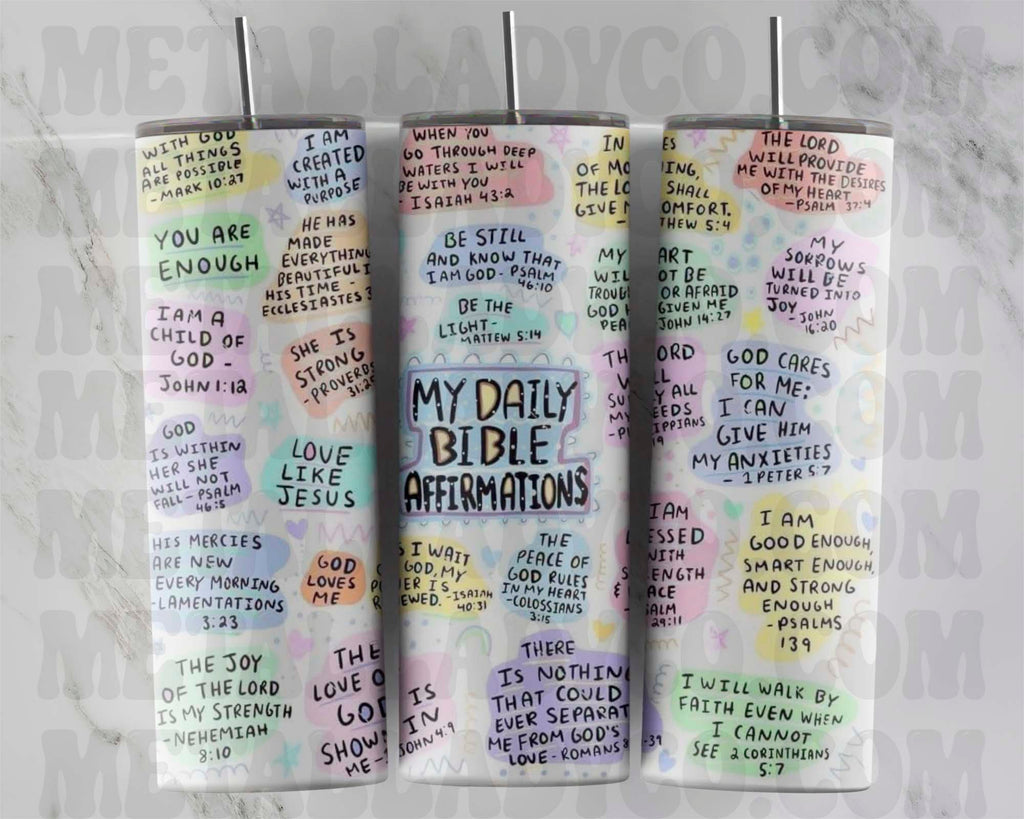 METALLADYCO.COM
WITH GOD
ALL THINGS
ARE POSSIBLE
- MARK 10:27
I AM
CREATED
WITH A
PURPOSE
YOU ARE
ENOUGH
HE HAS
MADE
EVERYTHING
BEAUTIFUL I
HIS TIME -
ECCLESIASTES 3
I AM A
CHILD OF
GOD -
JOHN 1:12
SHE IS
STRONG
- PROVERBS
31:25
GOD
IS WITHIN
HER SHE
WILL NOT
FALL - PSALM
46:5
LOVE
LIKE
JESUS
HIS MERCIES
ARE NEW
EVERY MORNING
- LAMENTATIONS
3:23
GOD
LOVES
ME
THE JOY
OF THE LORD
IS MY STRENGTH
- NEHEMIAH
8:10
THE
LOVE O
GOD
SHOWN
ME -
WHEN YOU
GO THROUGH DEEP
WATERS I WILL
BE WITH YOU
- ISAIAH 43:2
IN
OF MO
THE LO
GIVE M
BE STILL
AND KNOW THAT
I AM GOD - PSALM
46:10
MY
WIL
TROUG
GOD H
PEA
BE THE
LIGHT -
MATTEW 5:14
MY DAILY
BIBLE
AFFIRMATIONS
S I WAIT
GOD, MY
ER IS
EWED. - ISAIAH
40:31
THE
PEACE OF
GOD RULES
IN MY HEART
- COLOSSIANS
3:15
IS
IN
JOHN 4:9
THERE
IS NOTHING
THAT COULD
EVER SEPARAT
ME FROM GOD'S
LOVE - ROMANS 8
ES
ING,
SHALL
OMFORT.
THEW 5:4
THE LORD
WILL PROVIDE
ME WITH THE DESIRES
OF MY HEART
- PSALM 37:4
ART
OT BE
OR AFRAID
GIVEN ME
JOHN 14:27
MY
SORROWS
WILL BE
TURNED INTO
JOY
- JOHN
16:20
ORD
LL
Y ALL
EEDS
IPPIANS
19
GOD CARES
FOR ME:
I CAN
GIVE HIM
MY ANXIETIES
- 1 PETER 5:7
I AM
ESSED
WITH
ENGTH
ACE
SALM
29:11
I AM
GOOD ENOUGH,
SMART ENOUGH,
AND STRONG
ENOUGH
- PSALMS
139
-39
I WILL WALK BY
FAITH EVEN WHEN
I CANNOT
SEE 2 CORINTHIANS
5:7